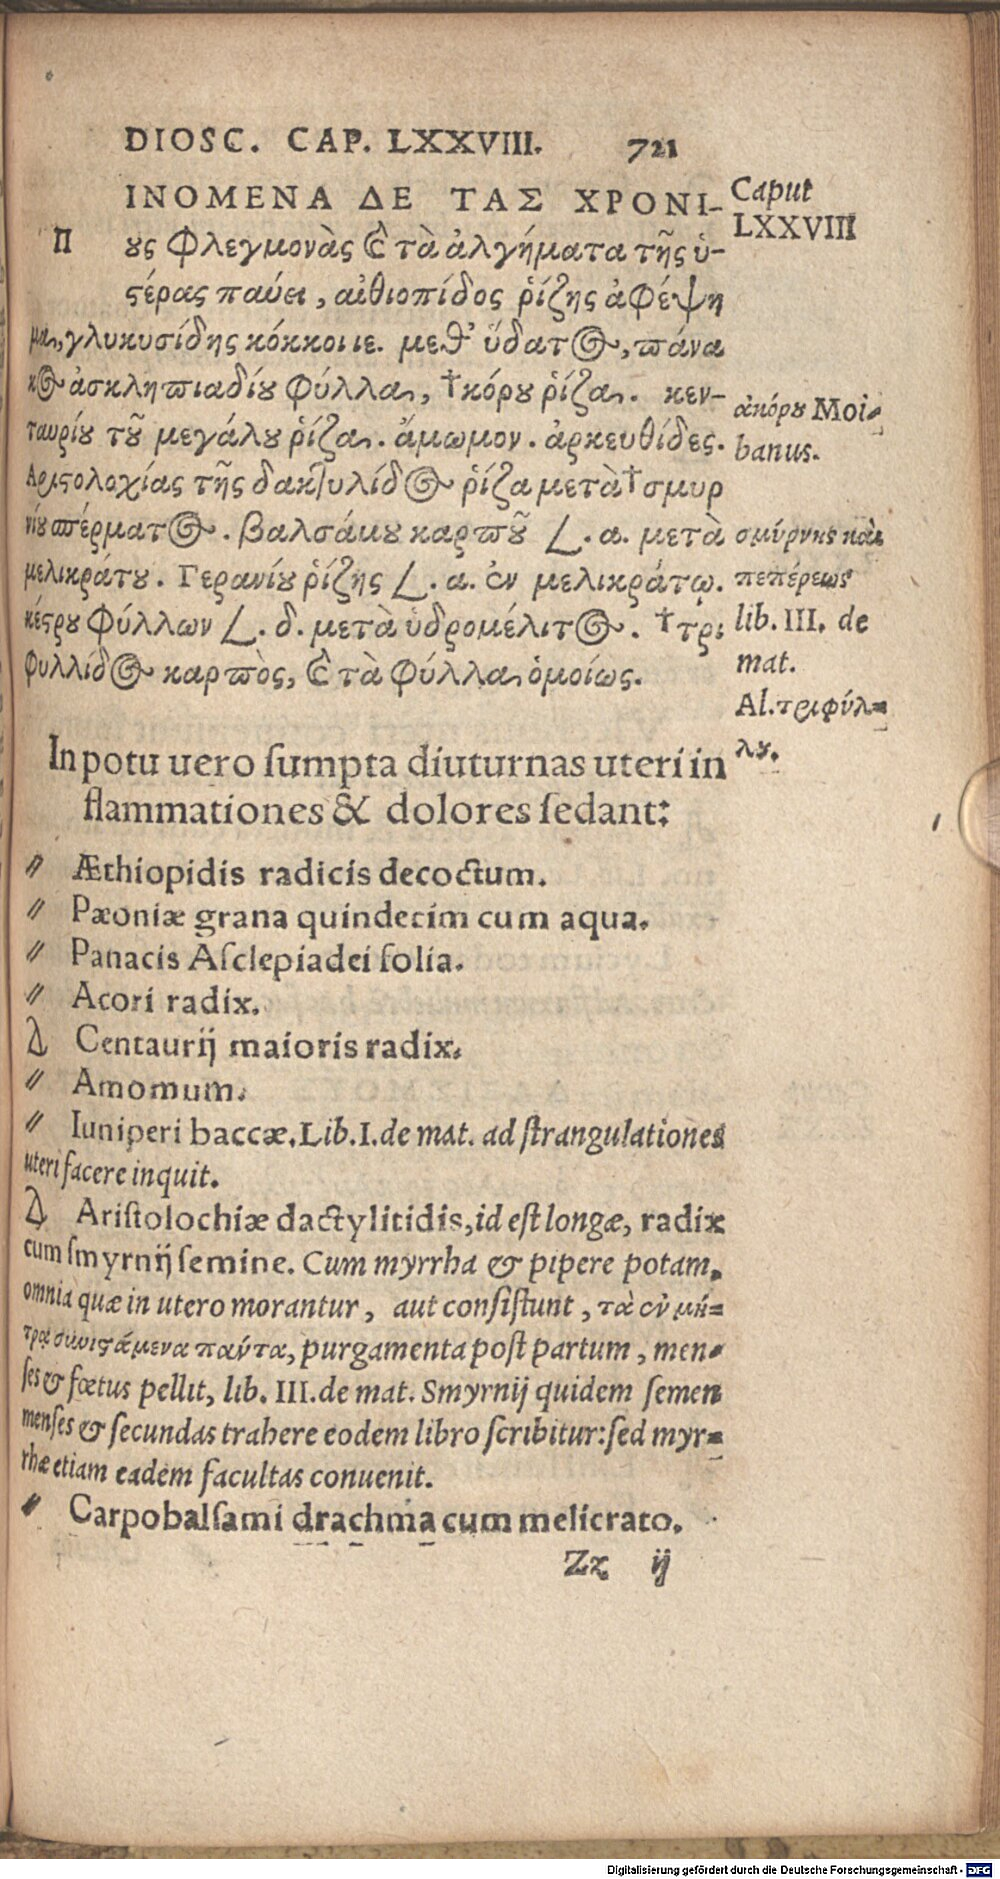 DIOSC. CAP. LXXVIII. 721
Caput
LXXVIII
Π
ΙΝΟΜΕΝΑ ΔΕ ΤΑΣ ΧΡΟΝΙ-
ους φλεγμονὰς καὶ τὰ ἀλγήματα τῆς ὑ-
στέρας παύει, αἰθιοπίδος ῥίζης ἀφέψη
μα, γλυκυσίδης κόκκοι ιε. μεθ' ὕδατος, πάνα
κος ἀσκληπιαδίου φύλλα, †κόρου ῥίζα. κεν-
ταυρίου τοῦ μεγάλου ῥίζα. ἄμωμον. ἀρκευθίδες.
Αριστολοχίας τῆς δακτυλίδος ῥίζα μετὰ †σμυρ
νίου σπέρματος. βαλσάμου καρποῦ 𐅻. α. μετὰ
μελικράτου. Γερανίου ῥίζης 𐅻. α. ἐν μελικράτῳ.
κέστρου φύλλων 𐅻. δ. μετὰ ὑδρομέλιτος. †τρι
φυλλίδος καρπὸς, καὶ τὰ φύλλα ὁμοίως.
ἀκόρου Moi-
banus.
σμύρνης καὶ
πεπέρεως
lib. III. de
mat.
Al. τριφύλ-
λου.
In potu uero ſumpta diuturnas uteri in
flammationes & dolores ſedant:
〃 Æthiopidis radicis decoctum.
〃 Pæoniæ grana quindecim cum aqua.
〃 Panacis Aſclepiadei folia.
〃 Acori radix.
Δ Centaurij maioris radix.
〃 Amomum.
〃 Iuniperi baccæ. Lib. I. de mat. ad ſtrangulationes
uteri facere inquit.
Δ Ariſtolochiæ dactylitidis, id eſt longæ, radix
cum ſmyrnij ſemine. Cum myrrha & pipere potam,
omnia quæ in utero morantur, aut conſiſtunt, τὰ ἐν μή-
τρᾳ συνιστάμενα πάντα, purgamenta poſt partum, men-
ſes & fœtus pellit, lib. III. de mat. Smyrnij quidem ſemen
menſes & ſecundas trahere eodem libro ſcribitur: ſed myr-
rhæ etiam eadem facultas conuenit.
〃 Carpobalſami drachma cum melicrato.
Zz ij
Digitalisierung gefördert durch die Deutsche Forschungsgemeinschaft - DFG